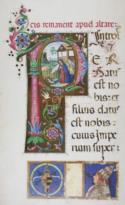 remanent apud altare:
Introi
P
E R
natus
est nobis: et
filius datus
est nobis:
cuius impe
rium super: